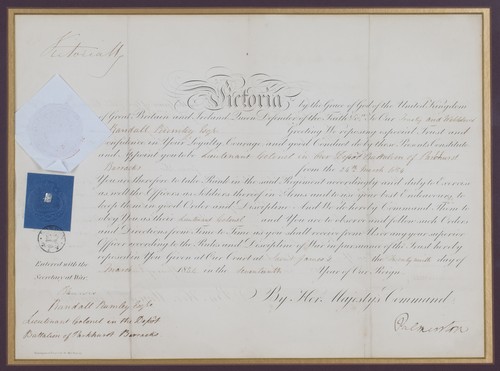 Victoria R
Victoria by the Grace of God of the United Kingdom
of Great Britain and Ireland Queen Defender of the Faith &c. To Our Trusty and Wellbeloved
Randall Esqr. Greeting We reposing especial Trust and
Confidence in Your Loyalty Courage and good Conduct do by these Presents Constitute
and Appoint you to be Lieutenant Colonel in the Depôt Battalion of
Barracks from the
You are therefore to take Rank in the said Regiment accordingly and duly to Exercise
as well the Officers as Soldiers thereof in Arms and to use your best Endeavours to
keep them in good Order and Discipline And We do hereby Command Them to
obey You as their Lieutenant Colonel and You are to observe and follow such Orders
and Directions from Time to Time as you shall receive from Us or any your superior
Officer according to the Rules and Discipline of War in pursuance of the Trust hereby
reposed in You Given at Our Court at Saint James's the day of
in the Year of Our Reign
Entered with the
Secretary at War
By Her Majesty's Command
Palmerston
Randall Esqr.
Lieutenant Colonel in the Depôt
Battalion of Barracks